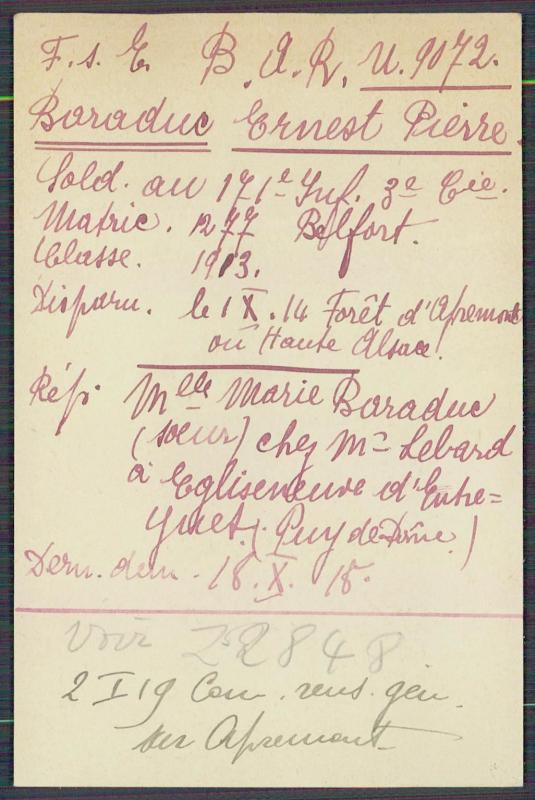 F. s. E. B. A. R, U. 9072.
Baraduc Ernest Pierre.
Sold. au 171e Inf. 3e Cie.
Matric. 1277 Belfort.
Classe. 1913.
Disparu. le 1 X. 14 Forêt d'Apremont
ou Haute Alsace.
Rép. Melle Marie Baraduc
(soeur) chez Mr Lebard
à Egliseneuve d'Entre=
(Puy de Dôme)
Dern. dem. 18. X. 18.
voir 22848
2 I 19 Com. rens. gén.
sur Apremont